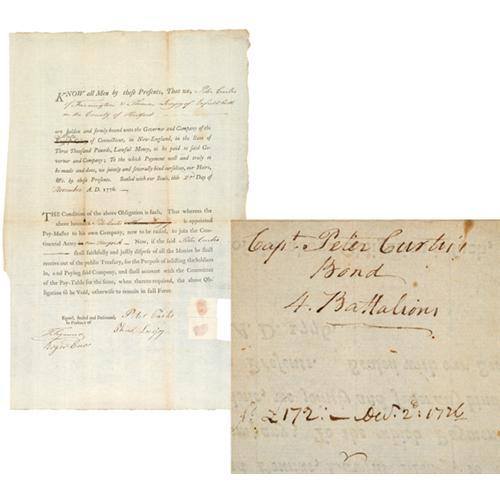 KNOW all Men by these Presents, That we, Peter Curtis
of Farmington & Thomas of Enfield both
in the County of Hartford
are holden and firmly bound unto the Governor and Company of the
of Connecticut, in New-England, in the Sum of
Three Thousand Pounds, Lawful Money, to be paid to said Governor
and Company; To the which Payment well and truly to
be made and done, we jointly and severally bind ourselves, our Heirs,
&c. by these Presents. Sealed with our Seals, this 2d Day of
A. D. 1776.
THE Condition of the above Obligation is such, That whereas the
above bounden is appointed
Pay-Master to his own Company, now to be raised, to join the Continental
Army Now, if the said Peter Curtis
shall faithfully and justly dispose of all the Monies he shall
receive out of the public Treasury, for the Purpose of inlisting the Soldiers
in, and Paying said Company, and shall account with the Committee
of the Pay-Table for the same, when thereto required, the above Obligation
to be Void, otherwise to remain in full Force.
Signed, Sealed and Delivered,
in Presence of
Peter Curtis
Capt. Peter Curtis's
Bond
4. Battalions
£172:— Decr. 2d. 1776